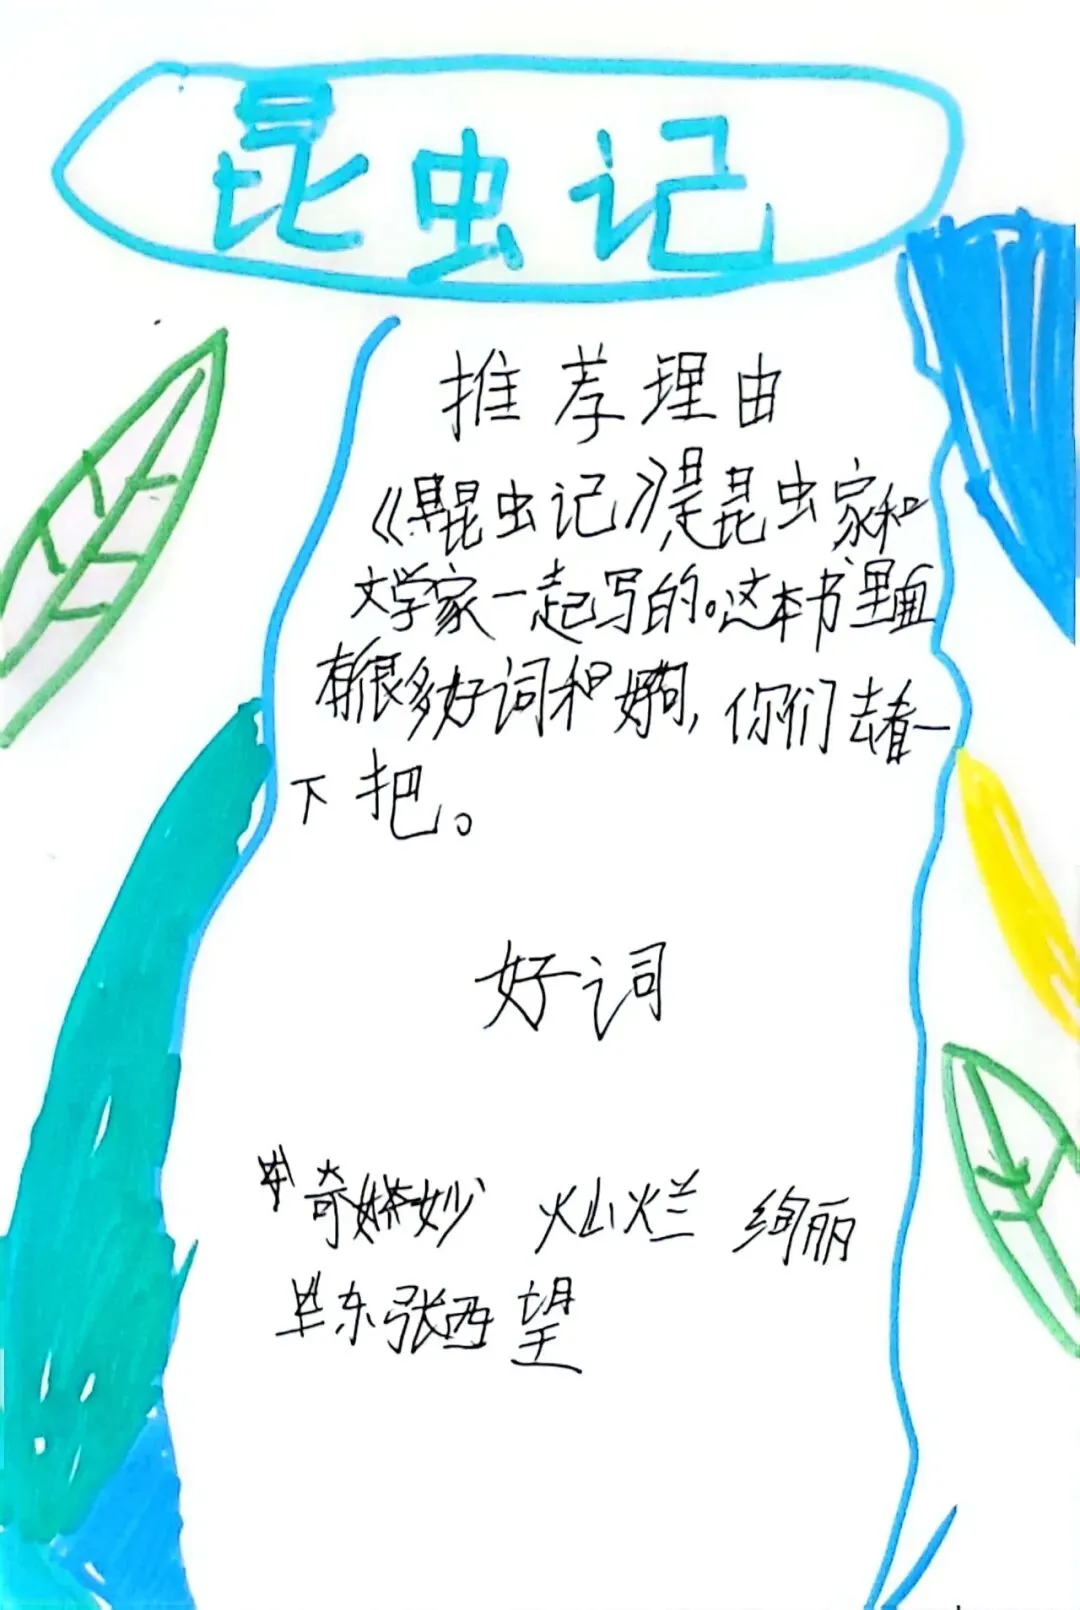 昆虫记
推荐理由
《昆虫记》是昆虫家和
文学家一起写的。这本书里面
有很多好词和好词,你们去看一
下把。
好词
奇妙 灿烂 绚丽
东张西望